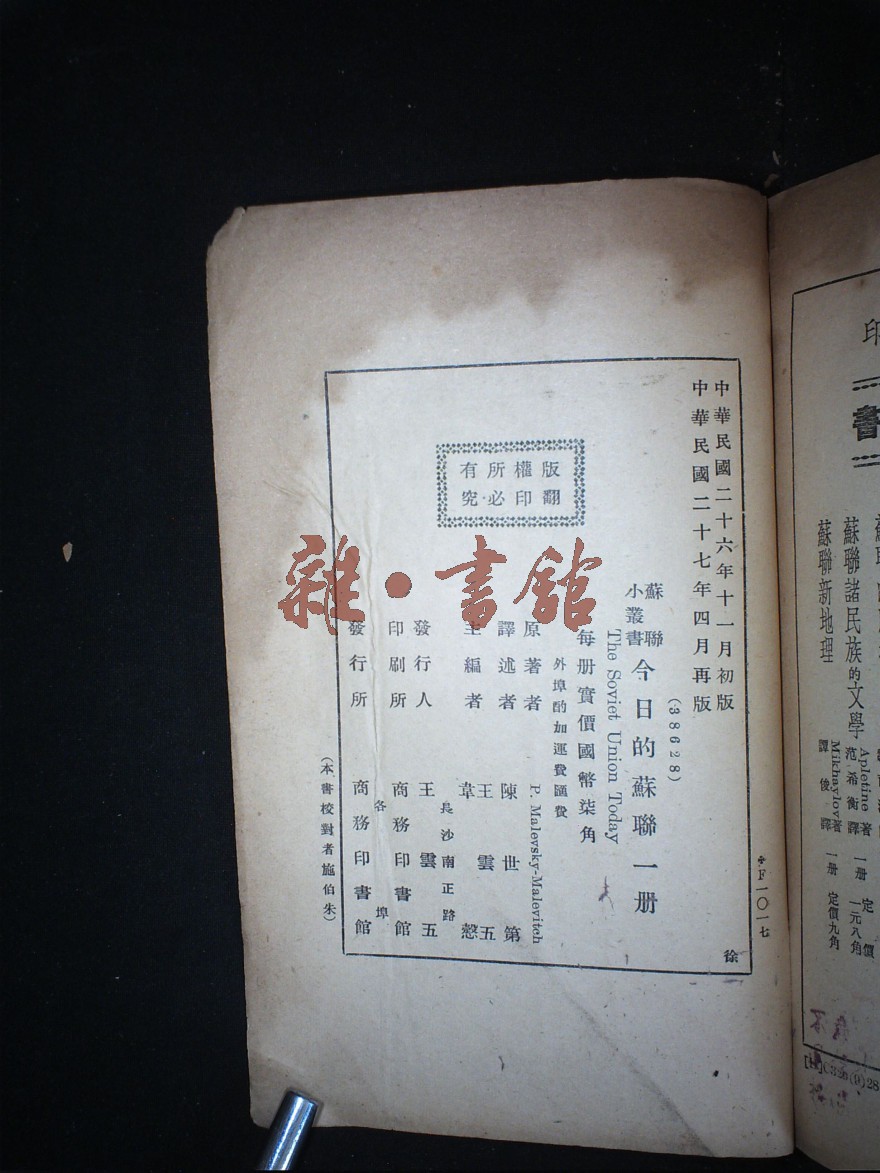 中華民國二十六年十一月初版
中華民國二十七年四月再版
(38628)
蘇聯小叢書
今日的蘇聯一册
The Soviet Union Today
每册實價國幣柒角
外埠酌加運費匯費
原著者 P. Malevsky-Malevitch
譯述者 陳世第
主編者 王雲五
韋慤
發行人 王雲五
長沙南正路
印刷所 商務印書館
發行所 商務印書館
各埠
(本書校對者施伯朱)
版權所有
翻印必究
徐
F一〇一七
雜·書館
印
書
蘇聯諸民族的文學
Apletine著
范希衡譯
一册 定價一元八角
蘇聯新地理
Mikhaylov著
譚俊譯
一册 定價九角